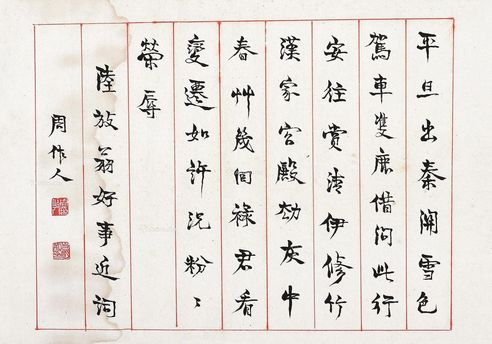 平旦出秦關雪色
駕車雙鹿借問此行
安往賞清伊修竹
漢家宮殿劫灰中
春艸幾回綠君看
變遷如許況紛〻
榮辱
陸放翁好事近詞
周作人